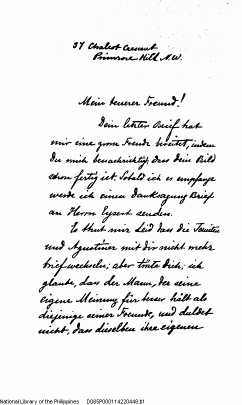 37 Chalcot Crescent
Primrose Hill N.W.
Mein teuerer Freund!
Dein letzter Brief hat
mir eine große Freude bereitet, indem
Du mich benachrichtigst, dass dein Bild
schon fertig ist. Sobald ich es empfange
werde ich einen Danksagung Brief
an Herrn Eysert senden.
Es thut mir Leid dass die Jesuiten
und Agustiner mit dir nicht mehr
briefwechseln; aber tröste Dich; ich
glaube, dass der Mann, der seine
eigene Meinung für besser hält als
diejenige seiner Freunde, und duldet
nicht, dass dieselben ihre eigenen
National Library of the Philippines D085P000114220448.tif